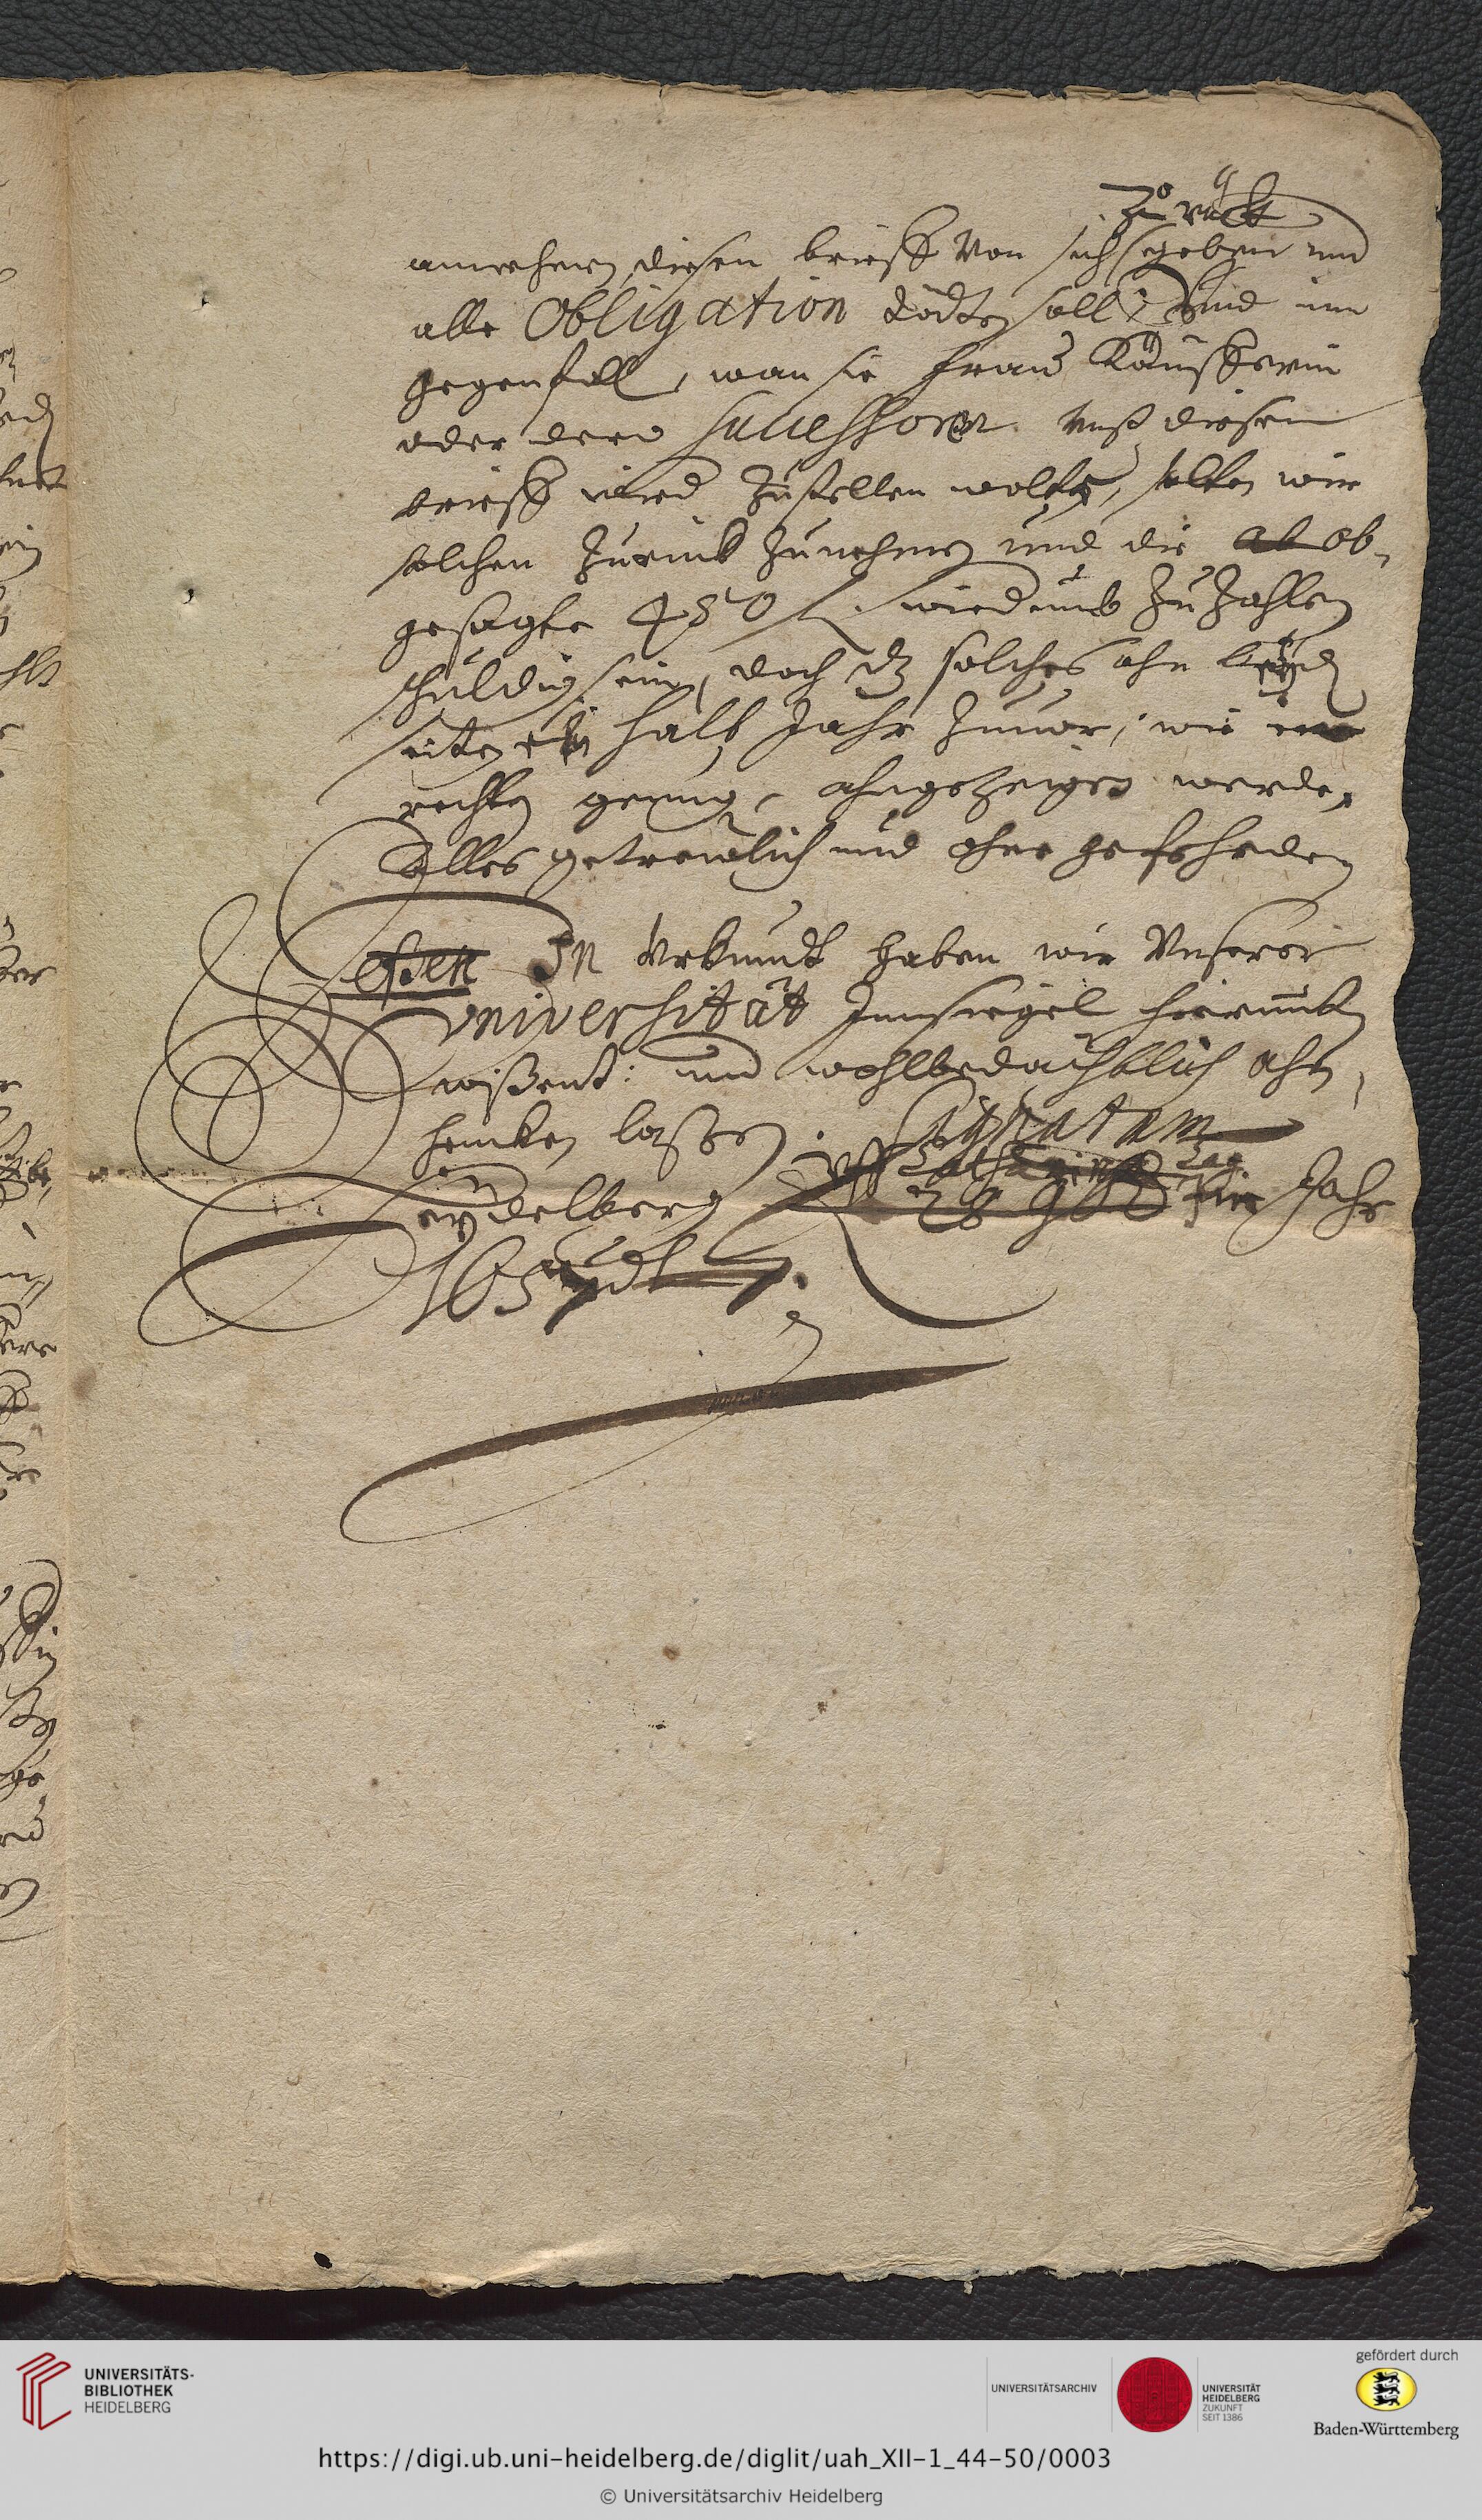 Zu rück
annehmen, diesen brieff von sich geben und
alle Obligation tödten soll, Und im
gegenfall, wan sie Fraw Käufferin
oder dero Successorn unß diesen
brieff wid zustellen wolten, sollen wir
solchen zurück zunehmen und die ab ob-
gesagte 450 fl. widerumb zu zahlen
schuldig sein, doch dz solches ahn
seiten ein halb Jahr zuvor, wie
rechten genug, ahngezeigt werde,
Alles getrewlich und ohne gefehrden
Deßen In Urkundt haben wir Unserer
Universität Innsiegel hierunden
wißent: und wohlbedächtlich ahn,
hencken laßen. Signatum
Heydelberg Uff Catharinae Tag
28 9bris im Jahr
UNIVERSITÄTS-
BIBLIOTHEK
HEIDELBERG
UNIVERSITÄTSARCHIV
UNIVERSITÄT
HEIDELBERG
ZUKUNFT
SEIT 1386
gefördert durch
Baden-Württemberg
https://digi.ub.uni-heidelberg.de/diglit/uah_XII-1_44-50/0003
© Universitätsarchiv Heidelberg